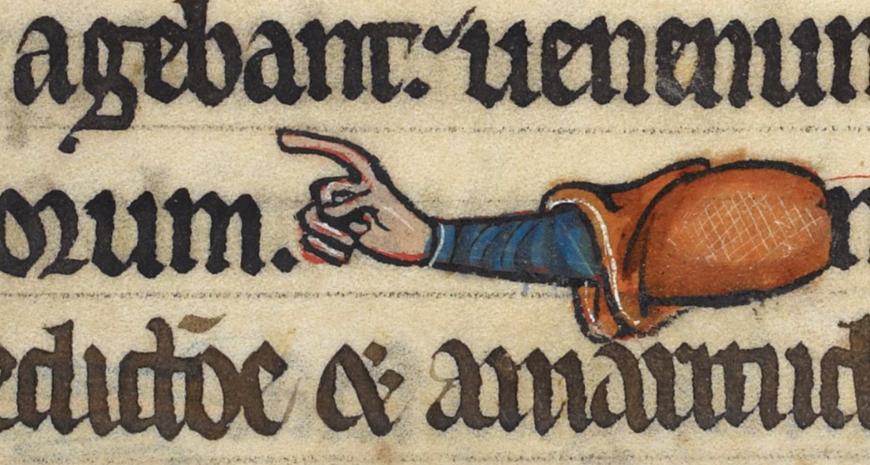 agebant: uenenum
orum.
edictōe & amaritud